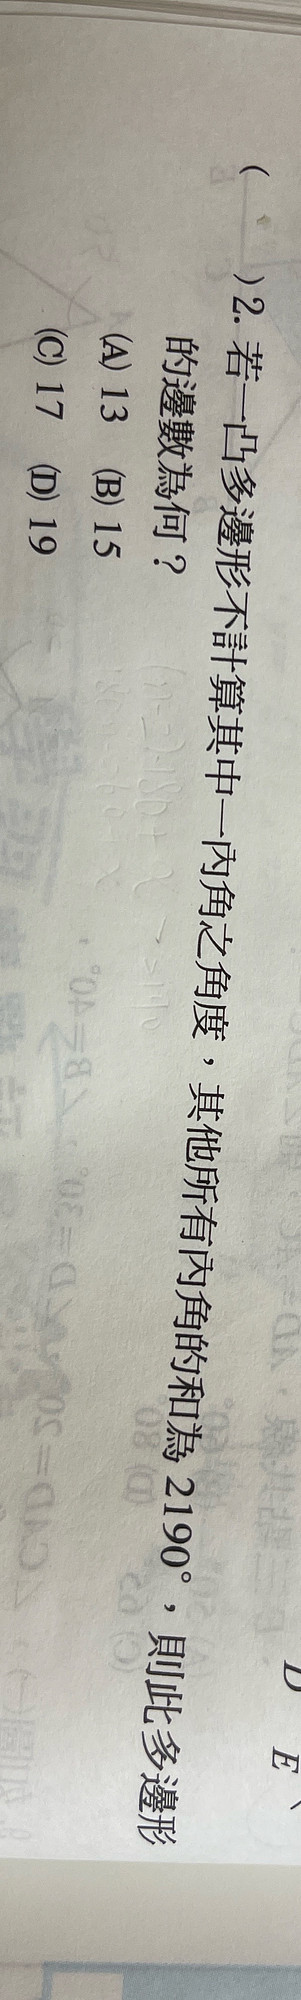 ( )2. 若一凸多邊形不計算其中一內角之角度，其他所有內角的和為 2190°，則此多邊形
的邊數為何？
(A) 13 (B) 15
(C) 17 (D) 19
D
E